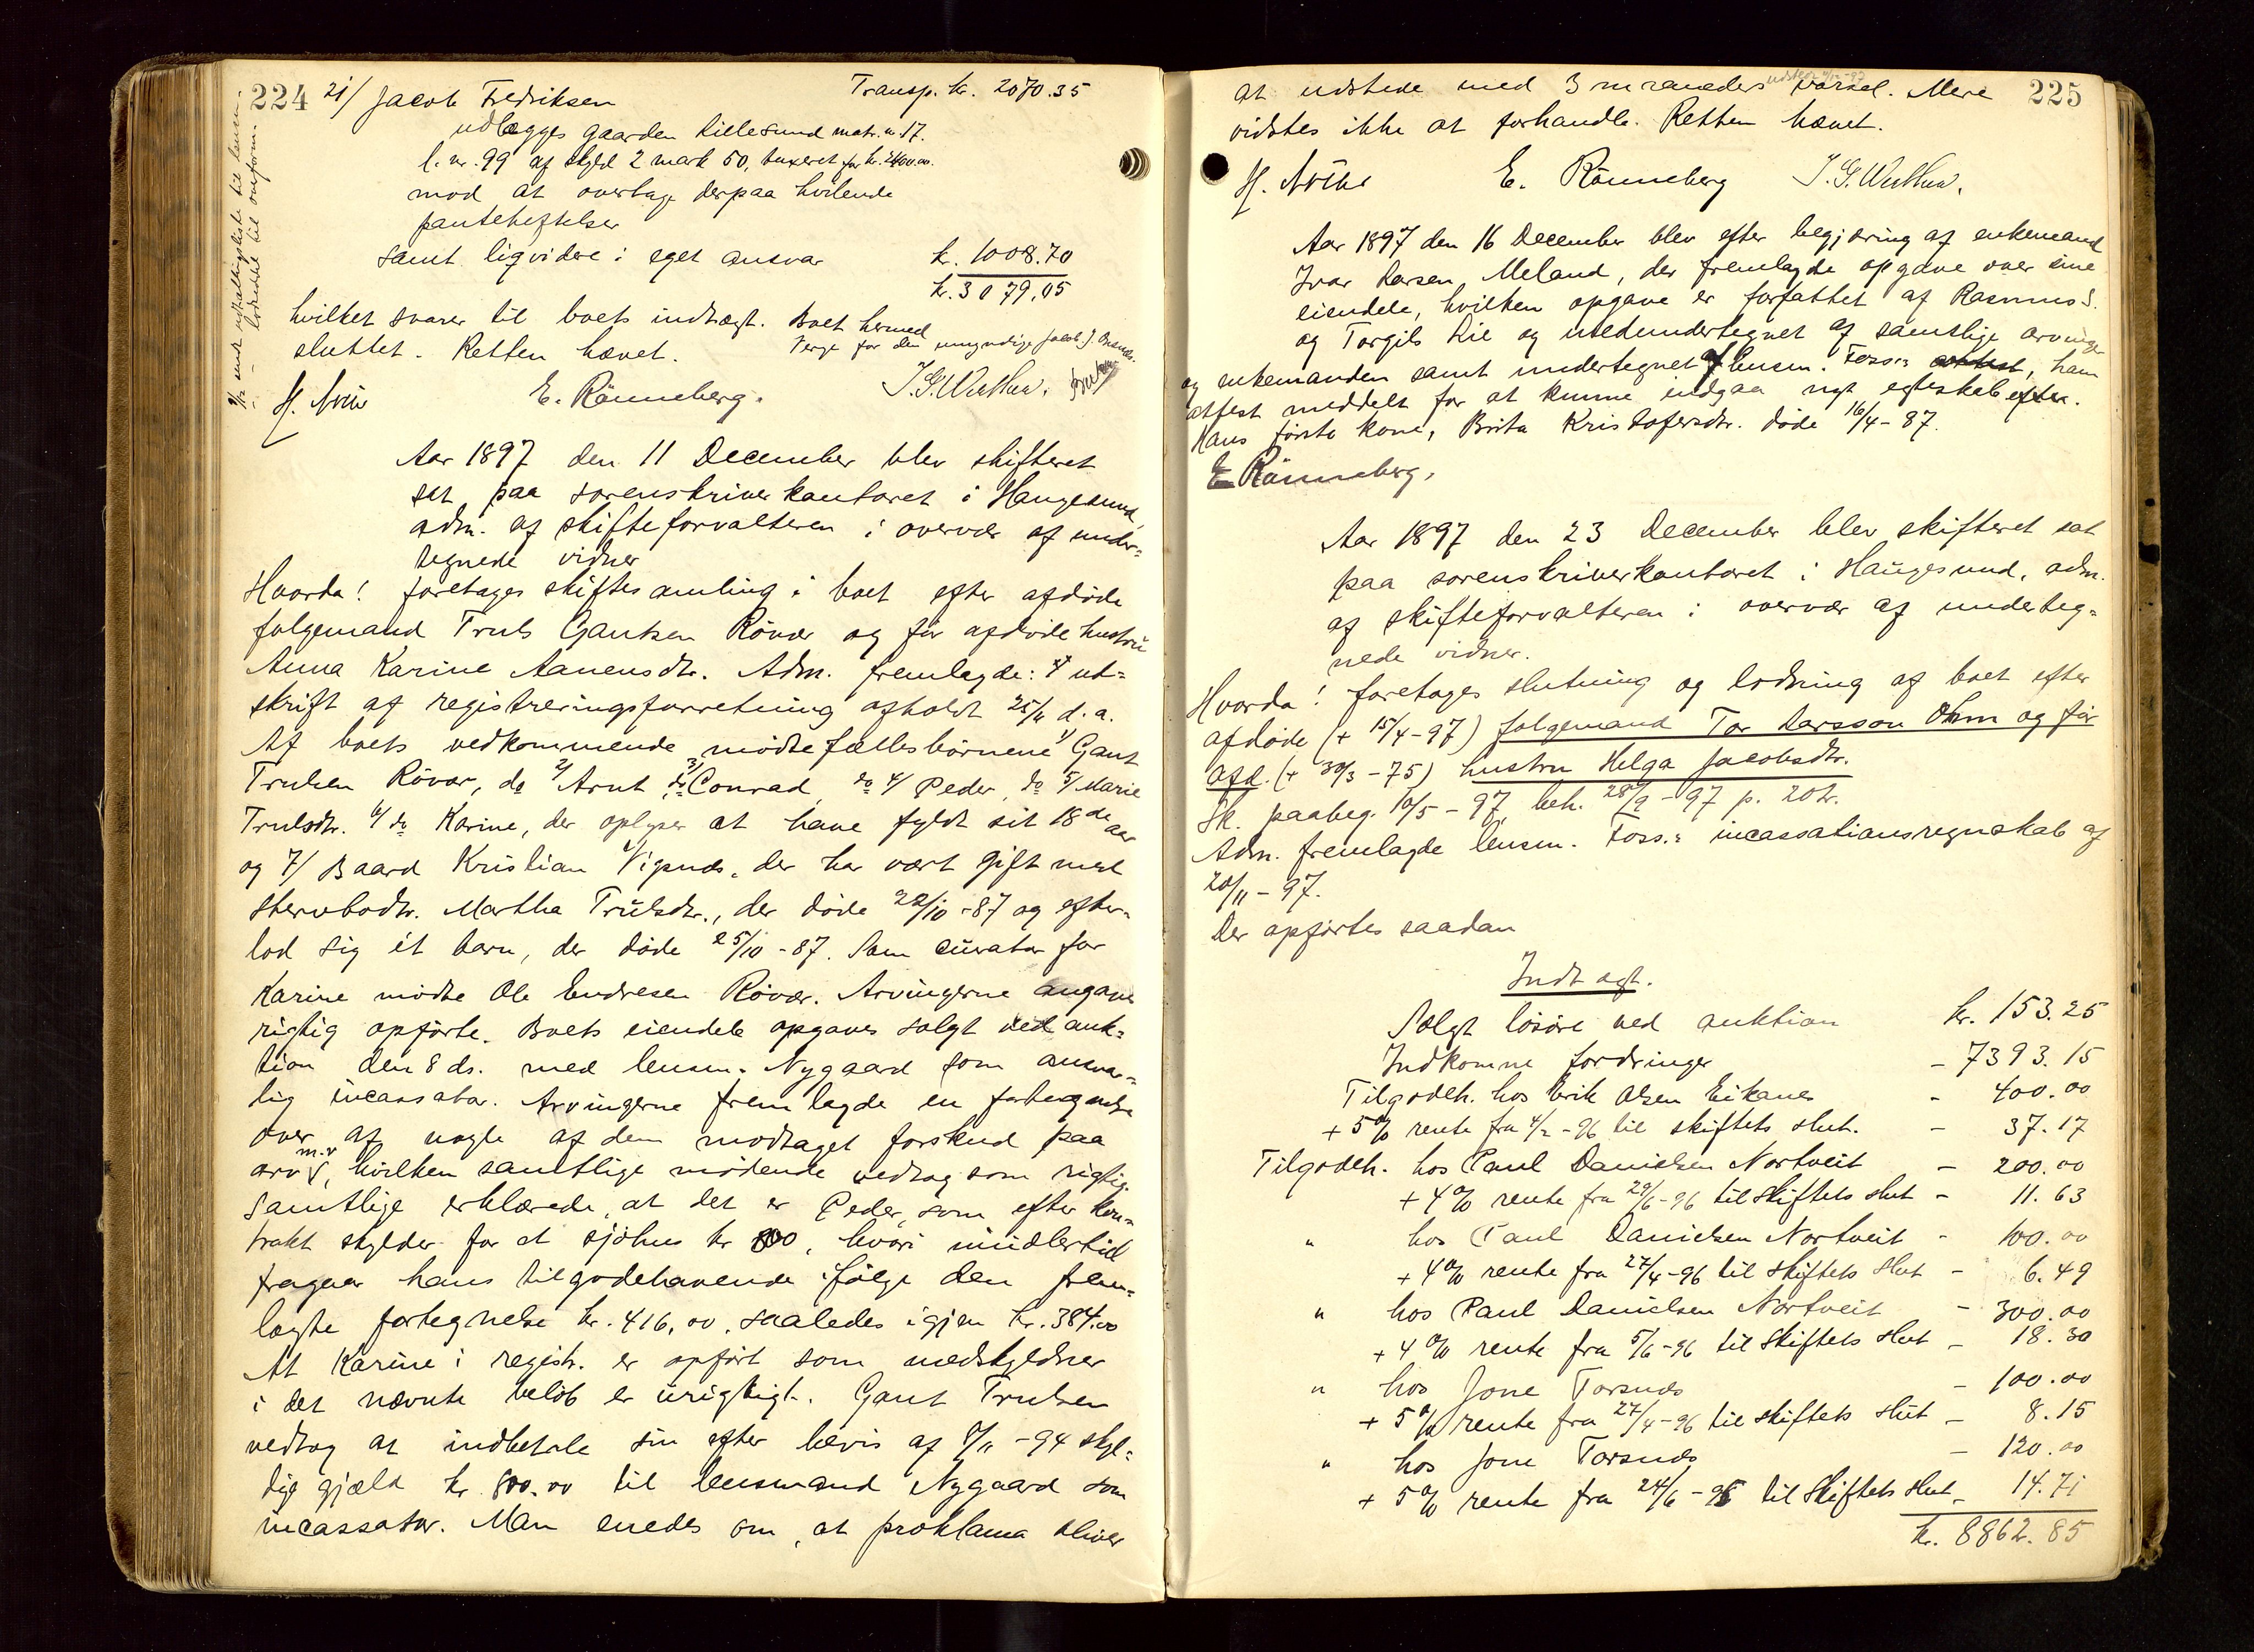 224
21/ Jacob Fredriksen Transp. kr. 2070.35
udlægges gaarden Lillesund matr. n 17.
l. nr. 99 af skyld 2 mark 50, taxeret for kr. 2400.00.
mod at overtage derpaa hvilende
panteheftelser
samt liqvidere i eget ansvar kr. 1008.70
kr. 3079.05
hvilket svarer til boets indtægt. Boet hermed
sluttet. Retten hævet. Verge for den umyndige Jacob J.
E. Rönneberg. J. G. Wathne.
Aar 1897 den 11 December blev skifteret
sat paa sorenskriverkontoret i Haugesund,
adm. af skifteforvalteren i overvær af under=
tegnede vidner
Hvorda! foretages skiftesamling i boet efter afdöde
folgemand Truls Gautsen Rövær og för afdöde hustru
Anna Karine Aanensdtr. Adm. fremlagde: ud=
skrift af registreringsforretning afholdt 25/11 d. a.
Af boets vedkommende mödte fællesbörnene 1/ Gaut
Trulsen Rövær, do 2/ Arnt do 3/ Conrad do 4/ Peder, do 5/ Marie
Trulsdtr. 6/ do Karine, der oplyser at have fyldt sit 18de aar
og 7/ Baard Kristian Vigsnæs, der har vært gift med
stervbodtr. Martha Trulsdtr., der döde 22/10 -87 og efter=
lod sig ét barn, der döde 25/10 -87. Som curator for
Karine mödte Ole Endresen Rövær. Arvingerne angaves
rigtig opförte. Boets eiendele opgaves solgt ved auk=
tion den 8 ds. med lensm. Nygaard som ansvar=
lig incassator. Arvingerne fremlagde en fortegnelse
over af nogle af dem modtaget forskud paa
arv m.v, hvilken samtlige mödende vedtog som rigtig.
Samtlige erklærede, at det er Peder, som efter kon=
trakt skylder for et sjöhus kr 800, hvori imidlertid
fragaar hans tilgodehavende ifölge den frem=
lagte fortegnelse kr. 416,00, saaledes igjen kr. 384.00
At Karine i registr. er opfört som medskyldner
i det nævnte belöb er urigtigt. Gaut Trulsen
vedtog at indbetale sin efter bevis af 7/11 -94 skyl=
dige gjæld kr. 800.00 til lensmand Nygaard som
incassator. Man enedes om, at proklama bliver
225
at udstede med 3 maaneders varsel. Mere
vidstes ikke at forhandle. Retten hævet.
E. Rönneberg J. G. Wathne.
Aar 1897 den 16 December blev efter begjæring af enkemand
Ivar Larsen Meland, der fremlagde opgave over sine
eiendele, hvilken opgave er forfattet af Rasmus S.
og Torgils Lie og medundertegnet af samtlige arvinger
og enkemanden samt undertegnet af lensm. Foss:, ham
attest meddelt for at kunne indgaa nyt egteskab efter.
Hans förste kone, Brita Kristofersdtr. döde 16/4 - 87.
E Rönneberg.
Aar 1897 den 23 December blev skifteret sat
paa sorenskriverkontoret i Haugesund, adm.
af skifteforvalteren i overvær af underteg=
nede vidner.
Hvorda! foretages slutning og lodning af boet efter
afdöde (+ 15/4 - 97) folgemand Tor Larsson Ohm og för
afd. (+ 30/3 - 75) hustru Helga Jacobsdtr.
Sk. paabeg. 10/5 - 97, beh. 28/9 - 97 p. 202.
Adm. fremlagde lensm. Foss.: incassationsregnskab af
20/11 - 97.
Der opförtes saadan
Indtægt.
Solgt lösöre ved auktion kr. 153.25
Indkomne fordringer - 7393.15
Tilgodeh. hos Erik Olsen Eikanes - 400.00
+ 5% rente fra 4/2 - 96 til skiftets slut. - 37.17
Tilgodeh. hos Paul Danielsen Nortveit - 200.00
+ 4% rente fra 29/6 - 96 til skiftets slut - 11.63
" hos Paul Danielsen Nortveit - 100.00
+ 4% rente fra 27/4 - 96 til skiftets slut - 6.49
" hos Paul Danielsen Nortveit - 300.00
+ 4% rente fra 5/6 - 96 til skiftets slut - 18.30
" hos Jone Torsnæs - 100.00
+ 5% rente fra 27/4 - 96 til skiftets slut - 8.15
" hos Jone Torsnæs - 120.00
+ 5% rente fra 24/6 - 95 til skiftets slut - 14.71
kr. 8862.85